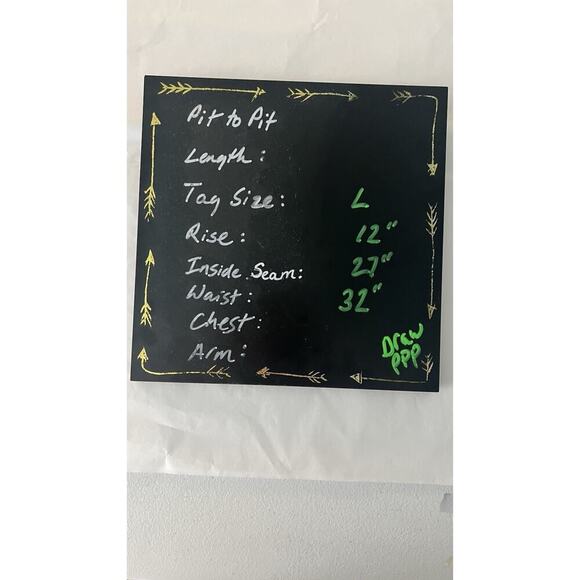 Pit to Pit
Length:
Tag Size: L
Rise: 12"
Inside Seam: 27"
Waist: 32"
Chest:
Arm:
Draw
PPP